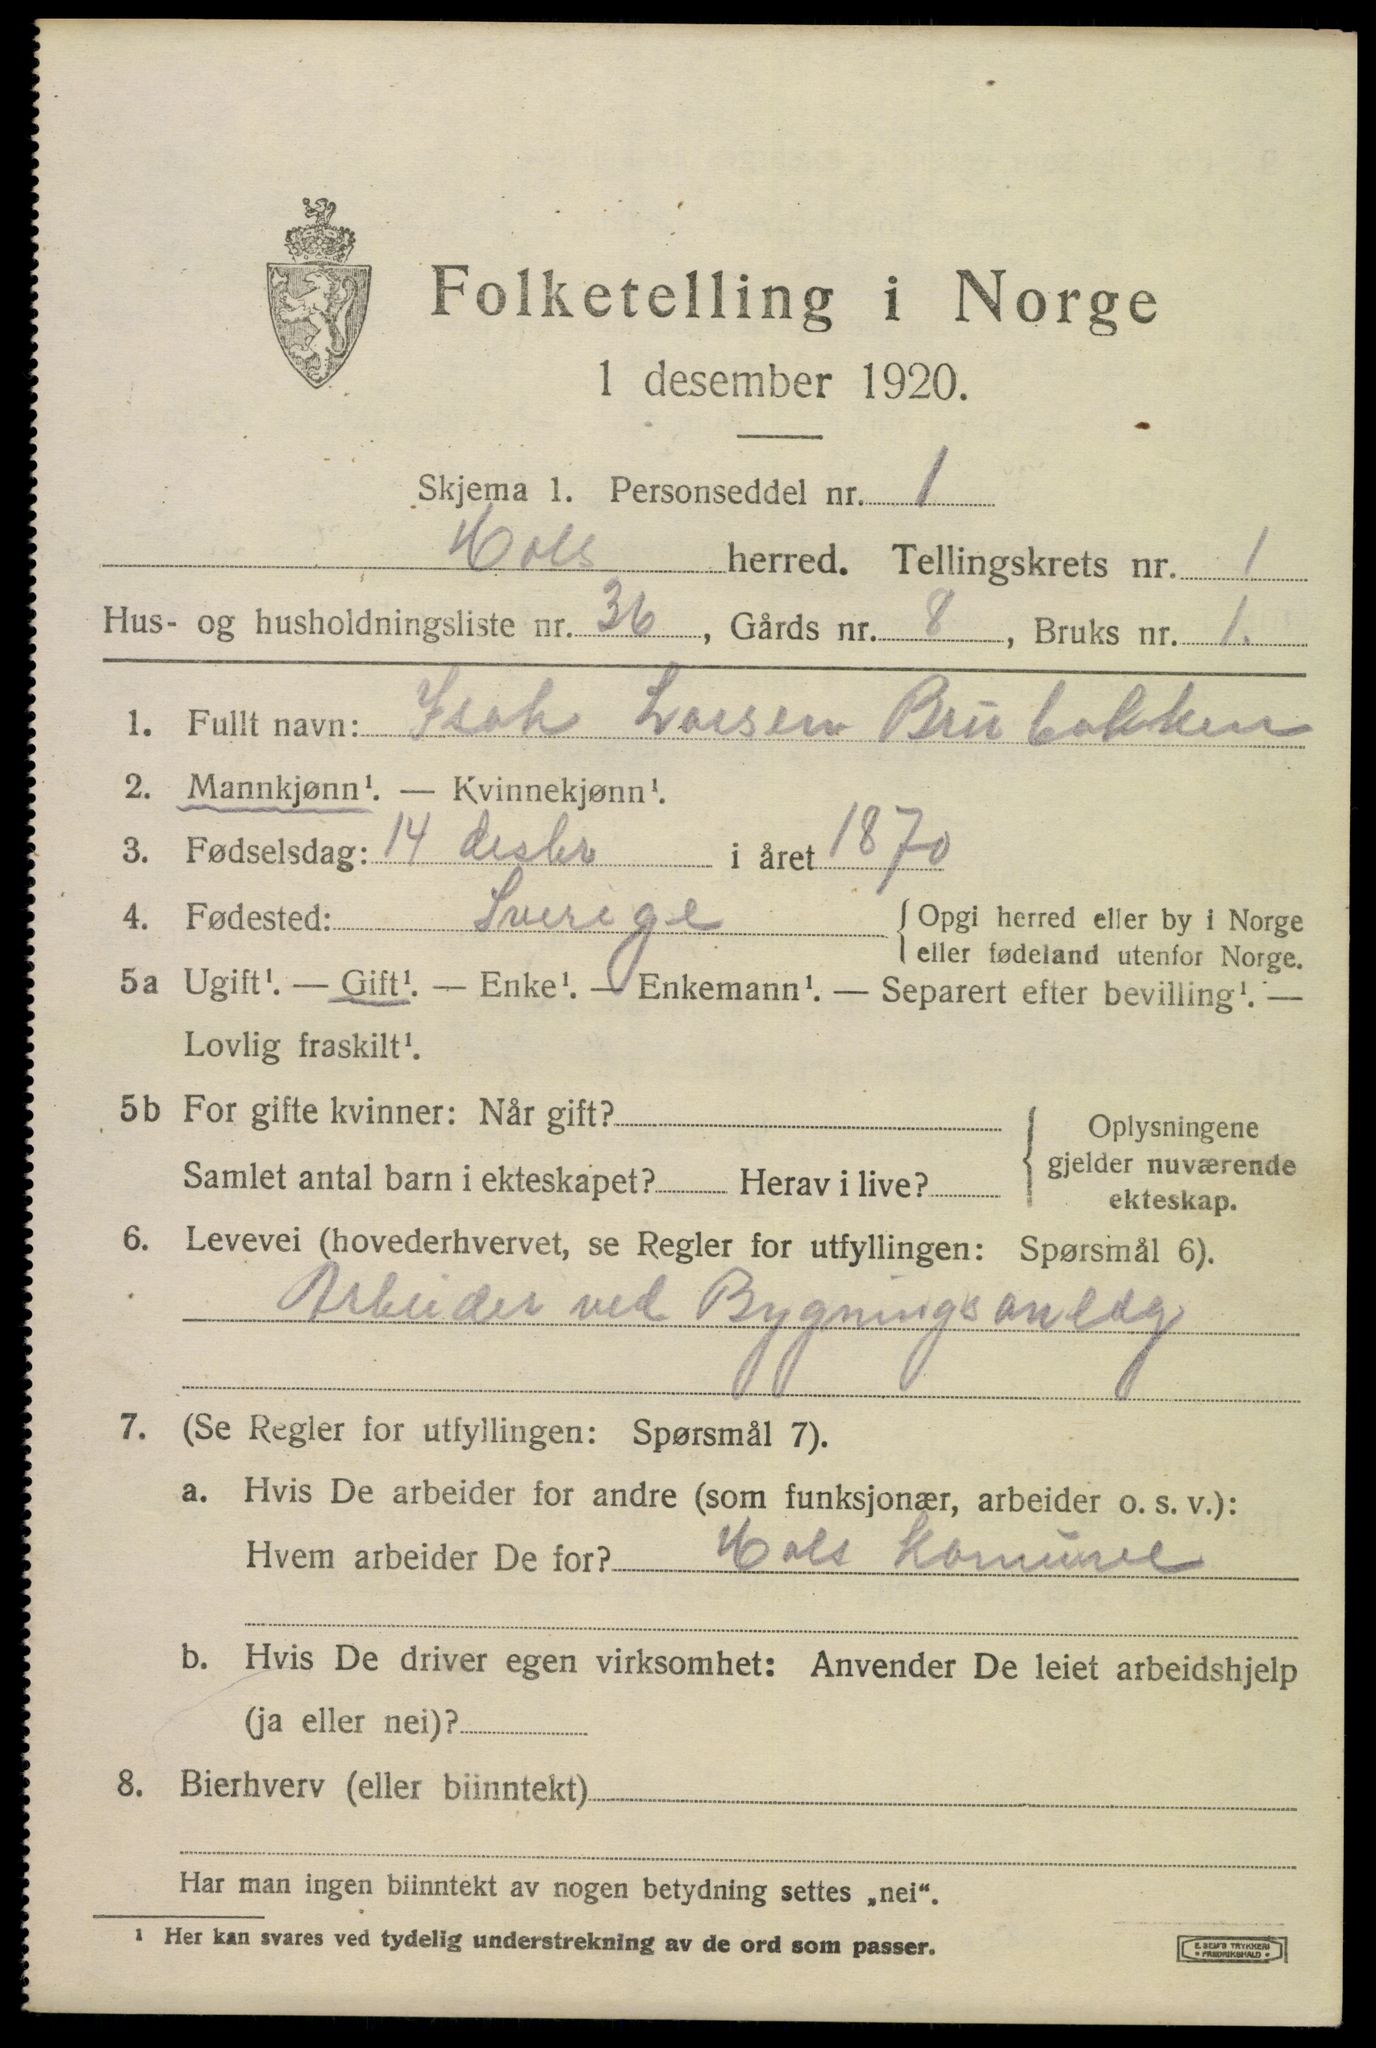 Folketelling i Norge
1 desember 1920.
Skjema 1. Personseddel nr. 1
Hols herred. Tellingskrets nr. 1
Hus- og husholdningsliste nr. 36, Gårds nr. 8, Bruks nr. 1.
1. Fullt navn: Isak Larsen Brubakken
2. Mannkjønn¹. — Kvinnekjønn¹.
3. Fødselsdag: 14 desbr i året 1870
4. Fødested: Sverige {Opgi herred eller by i Norge
eller fødeland utenfor Norge.
5a Ugift¹. — Gift¹. — Enke¹. — Enkemann¹. — Separert efter bevilling¹. —
Lovlig fraskilt¹.
5b For gifte kvinner: Når gift?
Samlet antal barn i ekteskapet? Herav i live?
{ Oplysningene
gjelder nuværende
ekteskap.
6. Levevei (hovederhvervet, se Regler for utfyllingen: Spørsmål 6).
Arbeider ved Bygningsanlæg
7. (Se Regler for utfyllingen: Spørsmål 7).
a. Hvis De arbeider for andre (som funksjonær, arbeider o. s. v.):
Hvem arbeider De for? Hols Komune
b. Hvis De driver egen virksomhet: Anvender De leiet arbeidshjelp
(ja eller nei)?
8. Bierhverv (eller biinntekt)
Har man ingen biinntekt av nogen betydning settes „nei“.
¹ Her kan svares ved tydelig understrekning av de ord som passer.
E. SEM'S TRYKKERI
• FREDRIKSHALD •